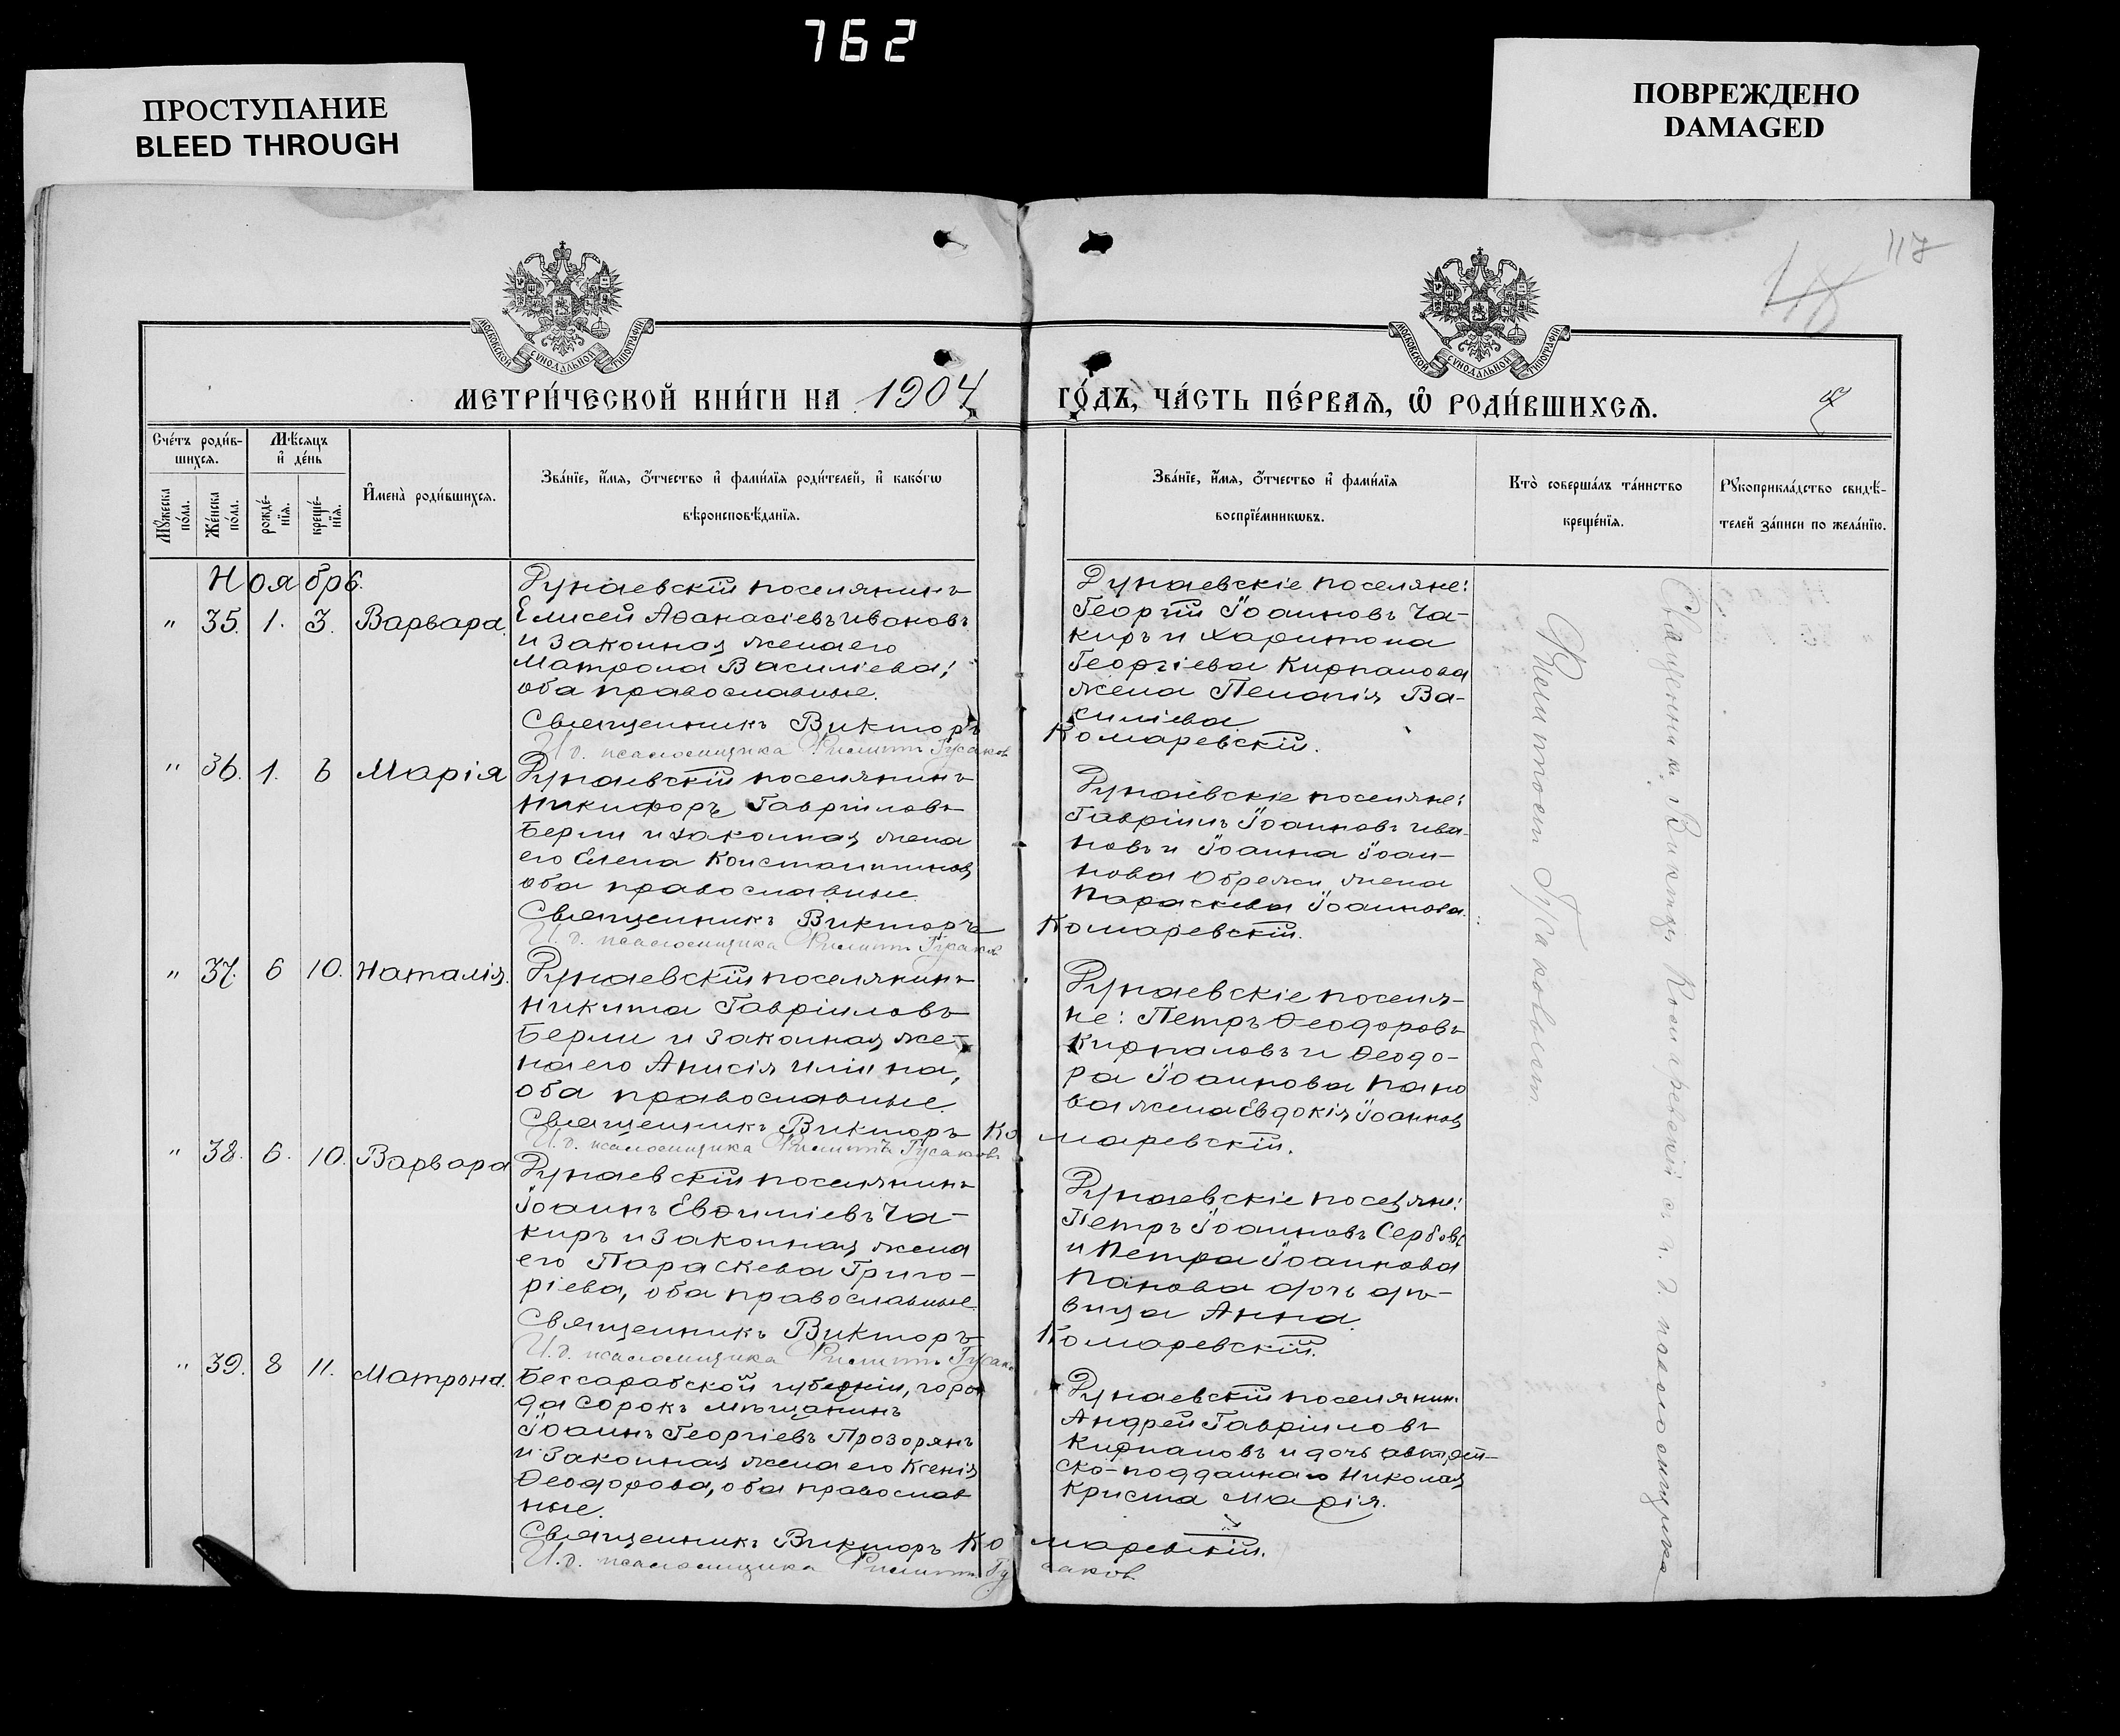 762
ПРОСТУПАНИЕ
BLEED THROUGH
ПОВРЕЖДЕНО
DAMAGED
117
МОСКОВСКОЙ СѴНОДАЛЬНОЙ ТИПОГРАФІИ
МОСКОВСКОЙ СѴНОДАЛЬНОЙ ТИПОГРАФІИ
МЕТРИ́ЧЕСКОЙ КНИ́ГИ НА 1904 ГО́ДЪ, ЧА́СТЬ ПЕ́РВАѦ, Ѡ҆ РОДИ́ВШИХСѦ.
Сче́тъ роди́в-
шихсѧ.
Мѣ́сѧцъ
и҆ де́нь
Мꙋ́жеска
по́ла.
Же́нска
по́ла.
рожде́-
нїѧ.
креще́-
нїѧ.
И҆мена̀ роди́вшихсѧ.
Зва́нїе, и҆́мѧ, ѻ҆́тчество и҆ фами́лїѧ роди́телей, и҆ како́гѡ
вѣроисповѣ́данїѧ.
Зва́нїе, и҆́мѧ, ѻ҆́тчество и҆ фами́лїѧ
воспрїе́мникѡвъ.
Кто̀ соверша́лъ та́инство
креще́нїѧ.
Рꙋкоприкла́дство свидѣ́-
телей за́писи по жела́нїю.
Ноябрь.
" 35. 1. 3. Варвара.
Дунаевскій поселянинъ
Елисей Аѳанасіевъ Ивановъ
и законная жена его
Матрона Василіева;
оба православные.
Священникъ Викторъ Комаревскій.
И.д. псаломщика Филиппъ Гусаковъ
Дунаевскіе поселяне:
Георгій Іоанновъ Ча-
киръ и Харитона
Георгіева Кирпанова
жена Пелагія Ва-
силіева
" 36. 1. 6 Марія
Дунаевскій поселянинъ
Никифоръ Гавріиловъ
Берли и законная жена
его Елена Константинова,
оба православные
Священникъ Викторъ Комаревскій.
И.д. псаломщика Филиппъ Гусаковъ
Дунаевскіе поселяне:
Гавріилъ Іоанновъ Ива-
новъ и Іоанна Іоан-
нова жена
Параскева Іоаннова.
" 37. 6 10. Наталія.
Дунаевскій поселянинъ
Никита Гавріиловъ
Берли и законная же-
на его Анисія Иліина,
оба православные.
Священникъ Викторъ Комаревскій.
И.д. псаломщика Филиппъ Гусаковъ
Дунаевскіе поселя-
не: Петръ Ѳеодоровъ
Кирпановъ и Ѳеодо-
ра Іоаннова Пано
ва жена Евдокія Іоаннова
" 38. 6. 10. Варвара
Дунаевскій поселянинъ
Іоаннъ Евѳиміевъ Ча-
киръ и законная жена
его Параскева Григо-
ріева, оба православные.
Священникъ Викторъ Комаревскій.
И.д. псаломщика Филиппъ Гусаковъ
Дунаевскіе поселяне:
Петръ Іоанновъ Сербовъ
и Петра Іоаннова
Панова дочь дѣ-
вица Анна.
" 39. 8 11. Матрона.
Бессарабской губерніи, горо
да Сорокъ мѣщанинъ
Іоаннъ Георгіевъ Прозорянъ
и законная жена его Ксенія
Ѳеодорова, оба православ
ные.
Священникъ Викторъ Комаревскій.
И.д. псаломщика Филиппъ Гусаковъ
Дунаевскій поселянинъ
Андрей Гавріиловъ
Кирпановъ и дочь австрій-
ско-подданнаго Николая
Криста Марія.
Священникъ Викторъ Комаревскій съ и. д. псаломщика
Филиппомъ Гусаковымъ.